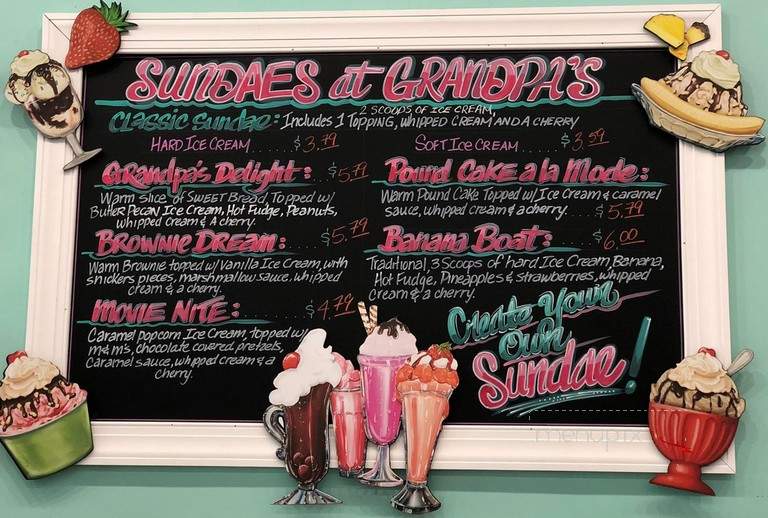 SUNDAES at GRANDPA'S
2 SCOOPS OF ICE CREAM,
Classic Sundae: Includes 1 Topping, whipped cream and a cherry
Hard Ice Cream ..... $3.79
Soft Ice Cream ..... $3.59
Grandpa's Delight: ... $5.79
Warm slice of Sweet Bread, Topped w/
Butter Pecan Ice Cream, Hot Fudge, Peanuts,
whipped cream & a cherry.
Brownie Dream: .... $5.79
Warm Brownie topped w/ Vanilla Ice Cream, with
snickers pieces, marshmallow sauce, whipped
cream & a cherry.
Movie Nite: ........ $4.79
Caramel popcorn Ice Cream, topped w/
m&m's, chocolate covered pretzels,
Caramel sauce, whipped cream & a
cherry.
Pound Cake a la Mode:
Warm Pound Cake Topped w/ Ice Cream & caramel
sauce, whipped cream & a cherry. ... $5.79
Banana Boat: .... $6.00
Traditional, 3 Scoops of hard Ice Cream, Banana,
Hot Fudge, Pineapples & strawberries, whipped
cream & a cherry.
Create Your
Own
Sundae!
menupix